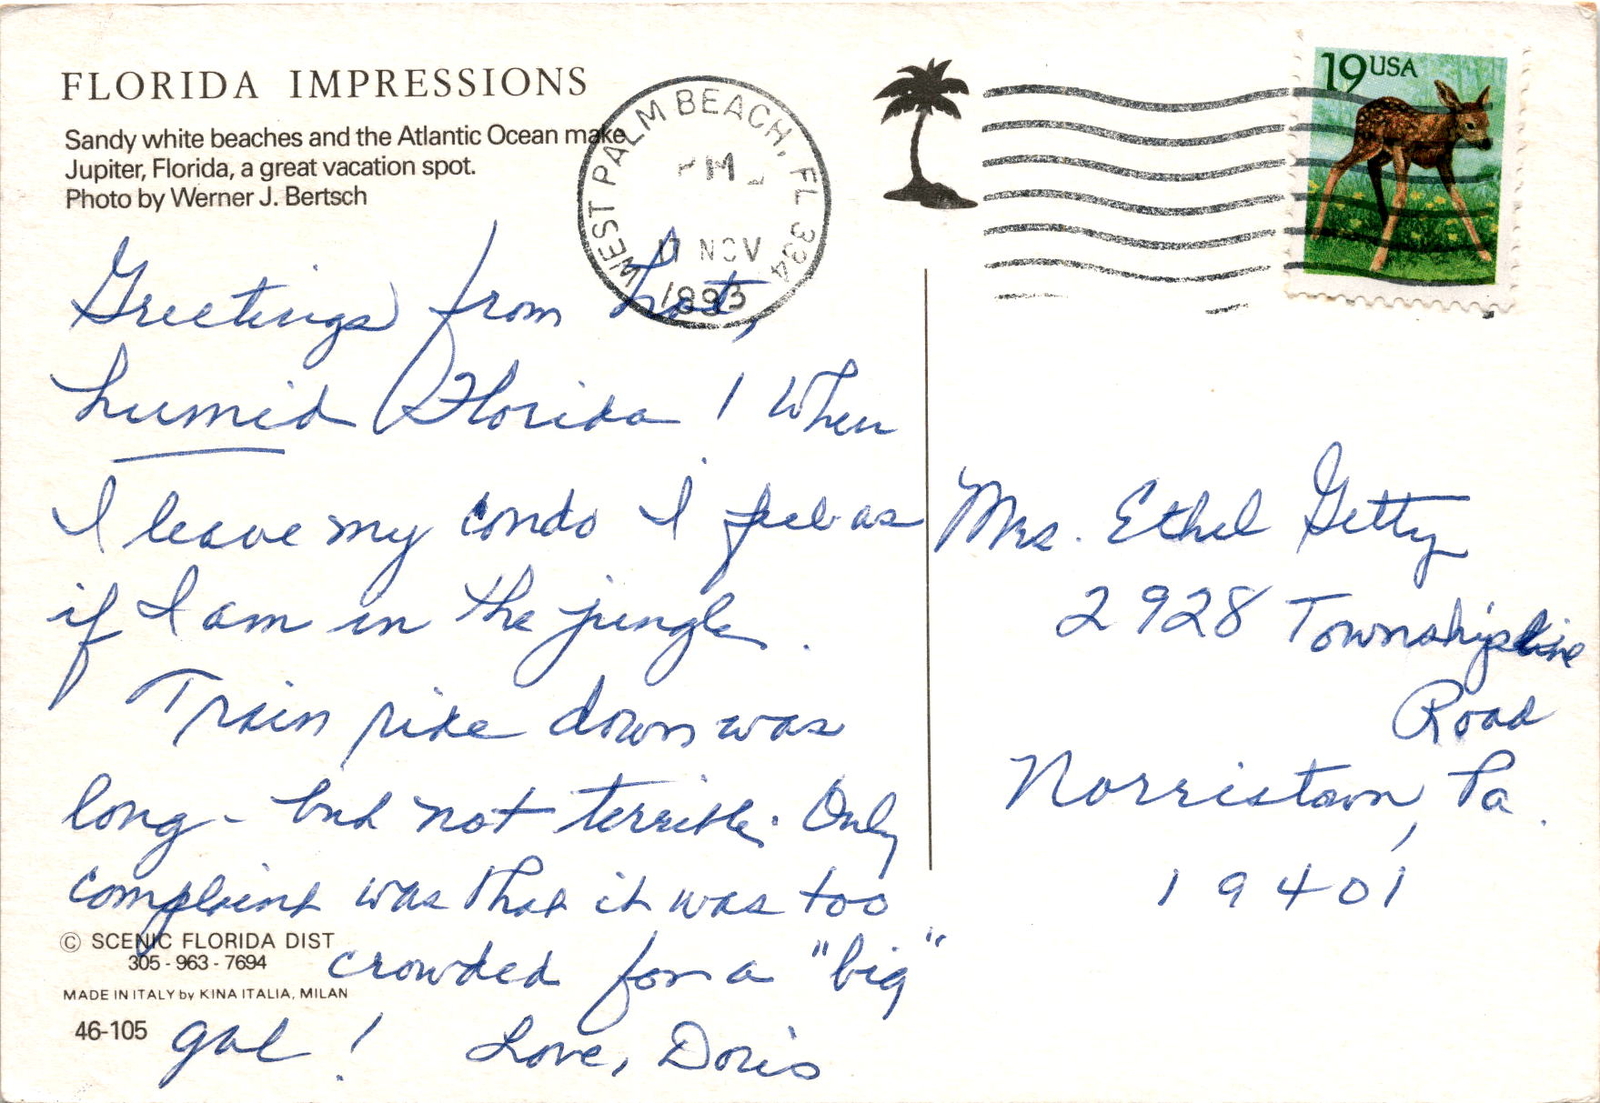 FLORIDA IMPRESSIONS
Sandy white beaches and the Atlantic Ocean make
Jupiter, Florida, a great vacation spot.
Photo by Werner J. Bertsch
WEST PALM BEACH, FL 334
PM
NOV
1993
19 USA
Greetings from hot,
humid Florida! When
I leave my condo I feel as
if I am in the jungle.
Train ride down was
long - but not terrible. Only
complaint was that it was too
crowded for a "big"
gal! Love, Doris
Mrs. Ethel Getty
2928 Townshipline
Road
Norristown, Pa.
19401
© SCENIC FLORIDA DIST
305-963-7694
MADE IN ITALY by KINA ITALIA, MILAN
46-105